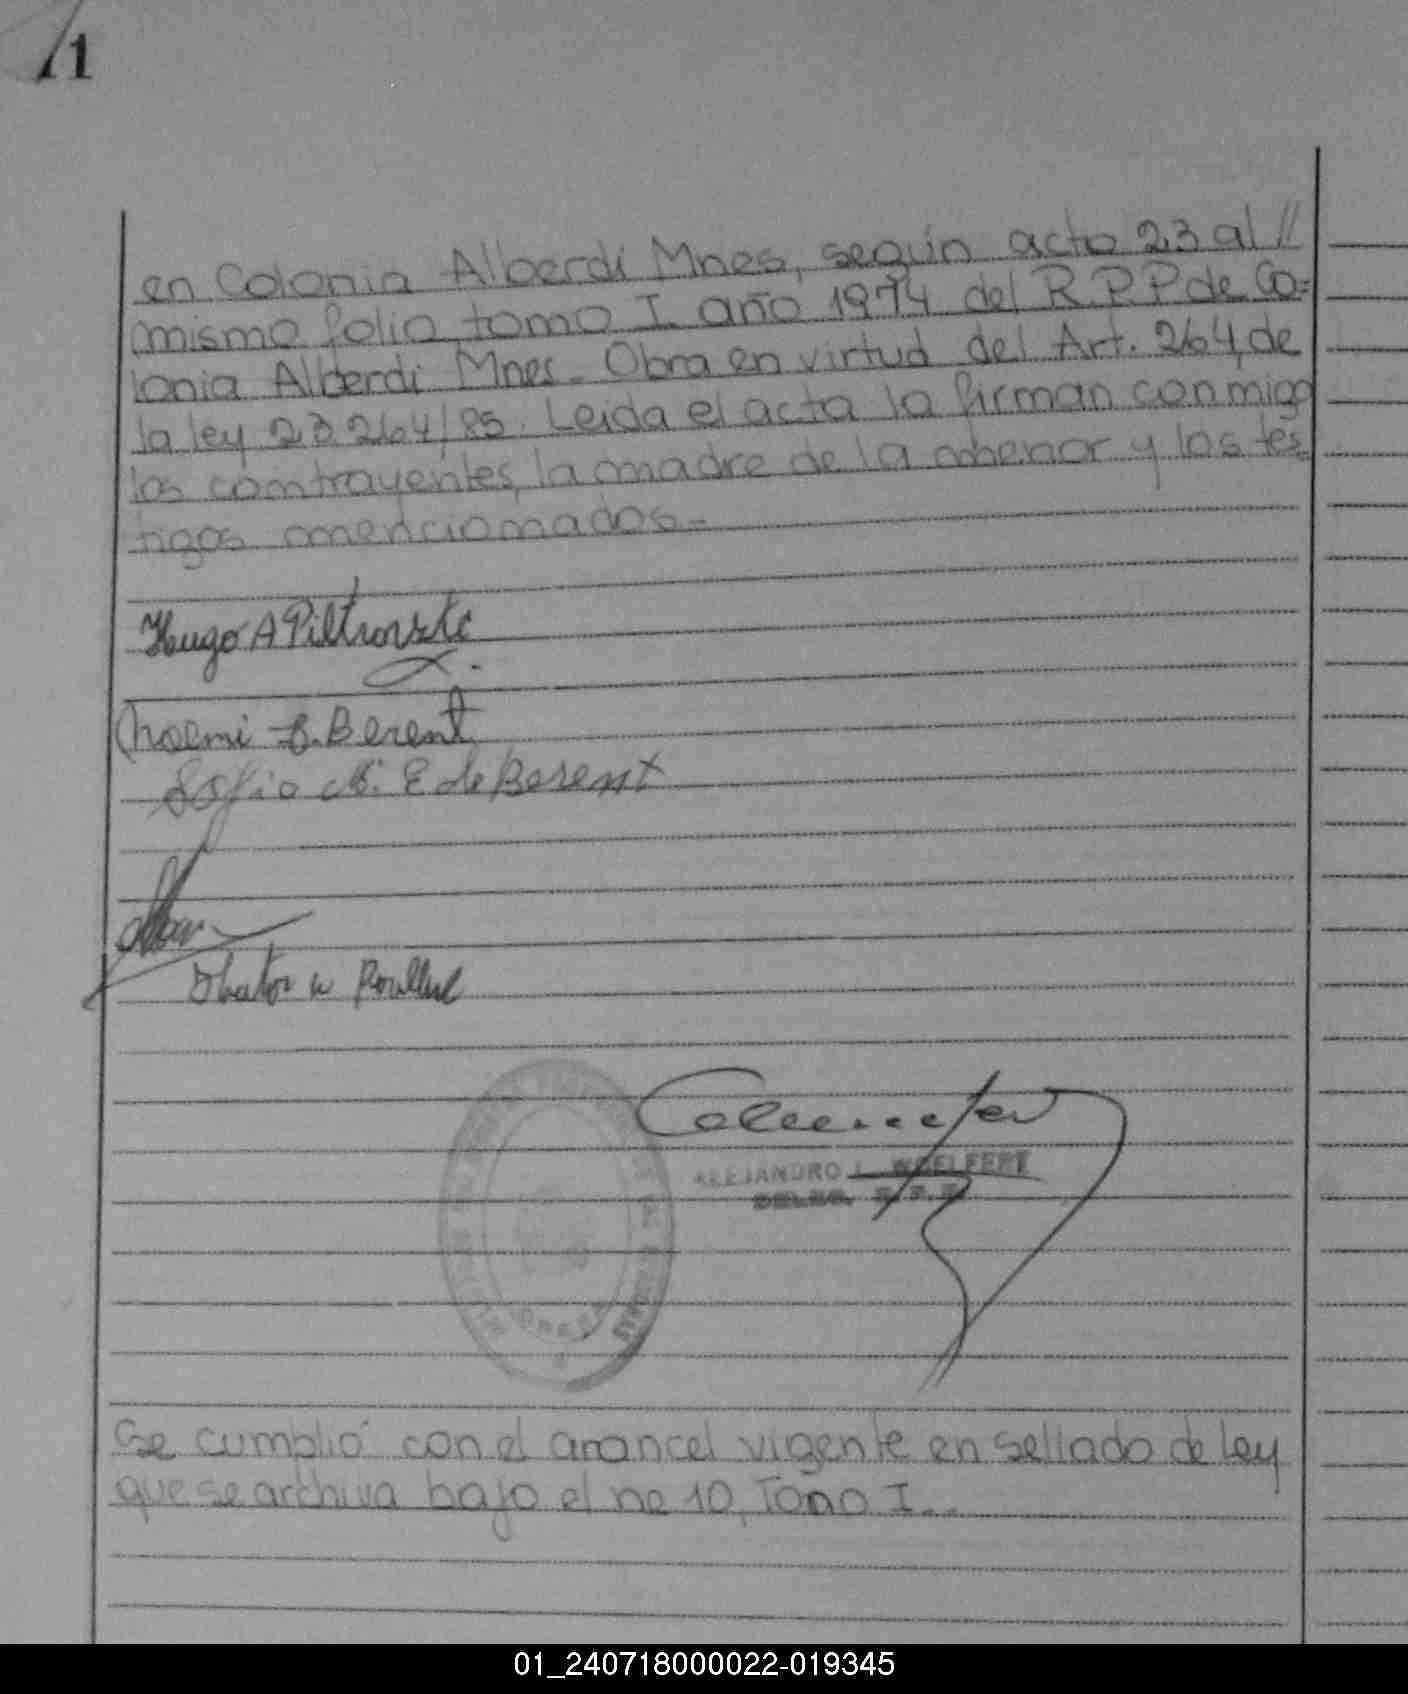 11
en Colonia Alberdi Mnes, según acta 23 al //
mismo folio, tomo I año 1974 del R.P.P de Co=
lonia Alberdi Mnes. Obra en virtud del Art. 264, de
la ley 23.264/85. Leída el acta la firman conmigo
los contrayentes, la madre de la menor y los tes=
tigos mencionados.-
Hugo A
Noemi Berent
Sofia M. E de Berent
ALEJANDRO L. WOELFERT
DELEG.
Se cumplió con el arancel vigente en sellado de ley
que se archiva bajo el no 10, Tomo I.-
01_240718000022-019345